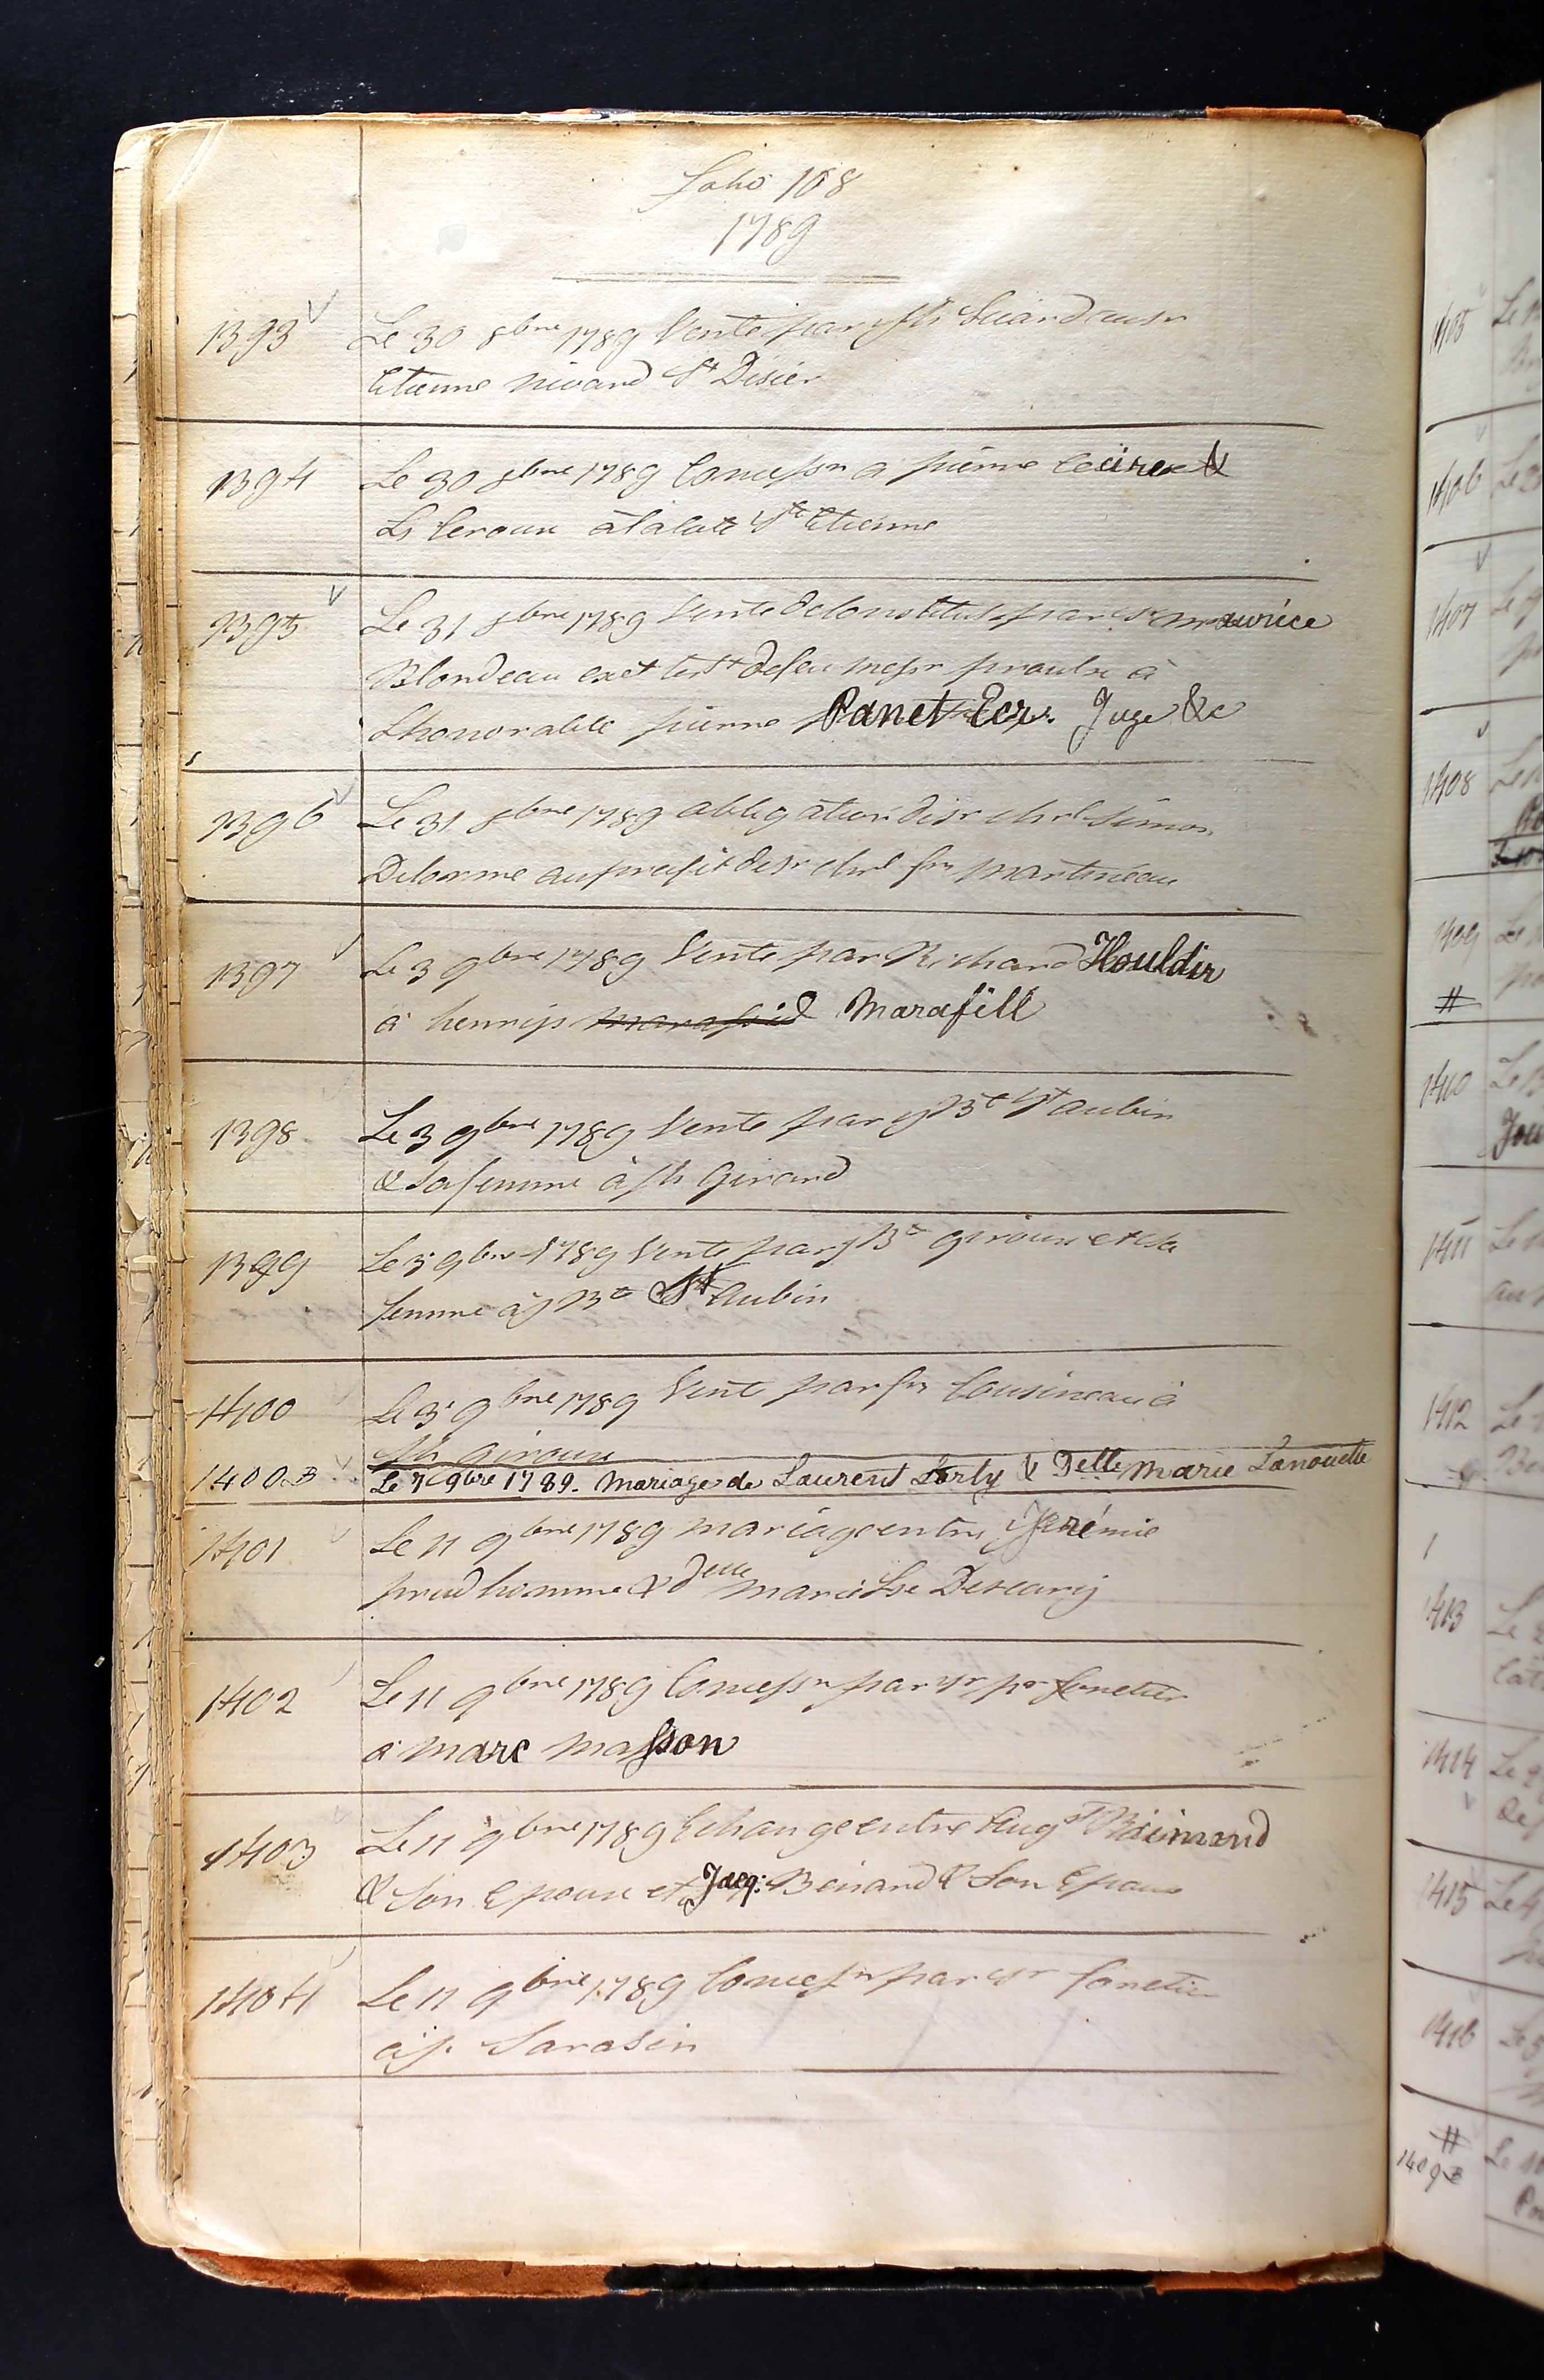 folio 108
1789
1393 Le 30 8bre 1789 Vente par Jh Suard au Sr
Etienne nivard St Disier
1394 Le 30 8bre 1789 Concessn a pierre &
Ls leroux à la Cote St Etienne
1395 Le 31 8bre 1789 Vente de Constitut par Sr maurice
Blondeau exet testt defeu messr proulx à
Lhonorable pierre Panet Ecr. Juge &c
1396 Le 31 8bre 1789 obligation du Sr chrl Simon
Delorme au profit du Sr chrl frs martineau
1397 Le 3 9bre 1789 Vente par Richard Houldin
à henrij Marafill
1398 Le 3 9bre 1789 Vente par J Bte St aubin
& sa femme à Jh Girard
1399 Le 3 9bre 1789 Vente par J Bte giroux et sa
femme à J Bte St Aubin
1400 Le 3 9bre 1789 Vente par frs Cousineau à
Jh Giroux
1400B Le 7e 9bre 1789. Mariage de Laurent Lorty & Delle Marie Lanouette
1401 Le 11 9bre 1789 mariage entre Jérémie
prudhomme & delle marie Lse Descarij
1402 Le 11 9bre 1789 Concessn par Sr pr fonetier
a Marc Masson
1403 Le 11 9bre 1789 Echange entre Augst Raimond
& Son Epouse et Jacq: Benard & Son Epouse
1404 Le 11 9bre 1789 Concesn par Sr fonetier
à p. Sarasin
1405
1406
1407
1408
1409
#
1410
1411
1412
1413
1414
1415
1416
#
1409B